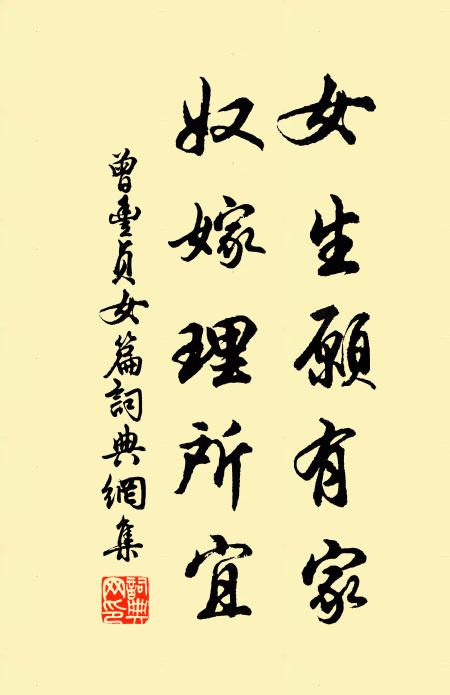 女生願有家
奴嫁理所宜
曾豊貞女篇詞典網集
詞典网印